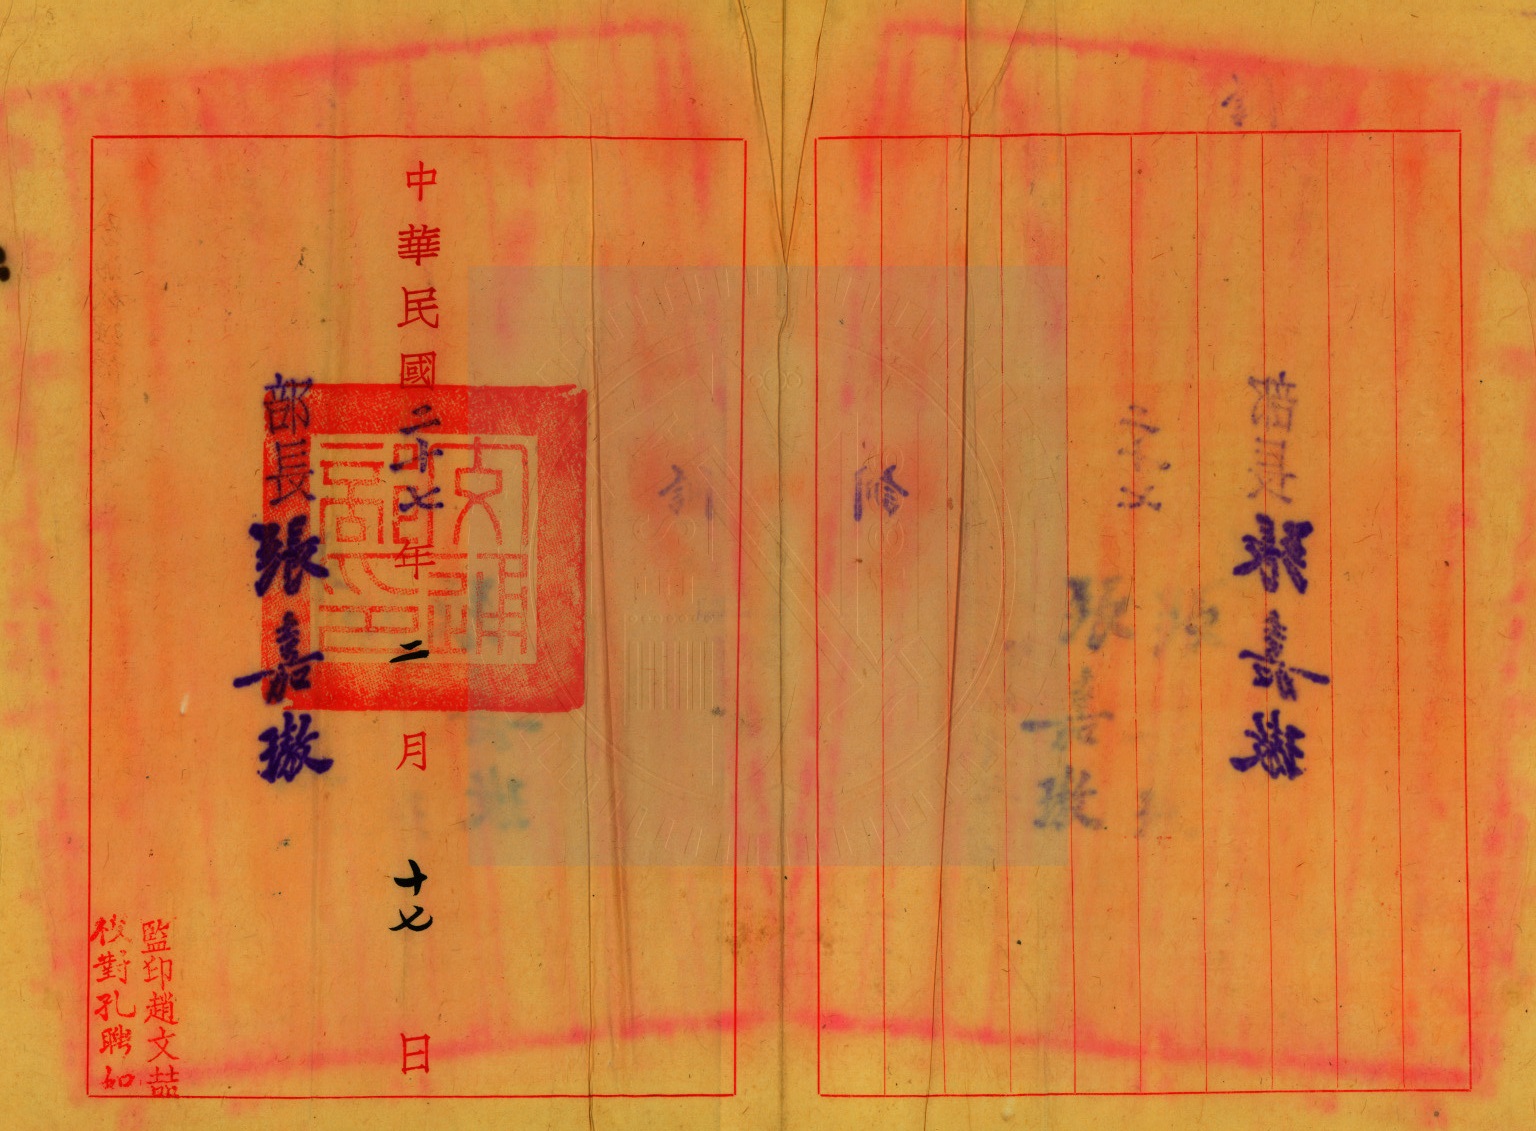 中華民國二十七年二月十七日
交通部印
部長張嘉璈
監印趙文喆
校對孔聘如